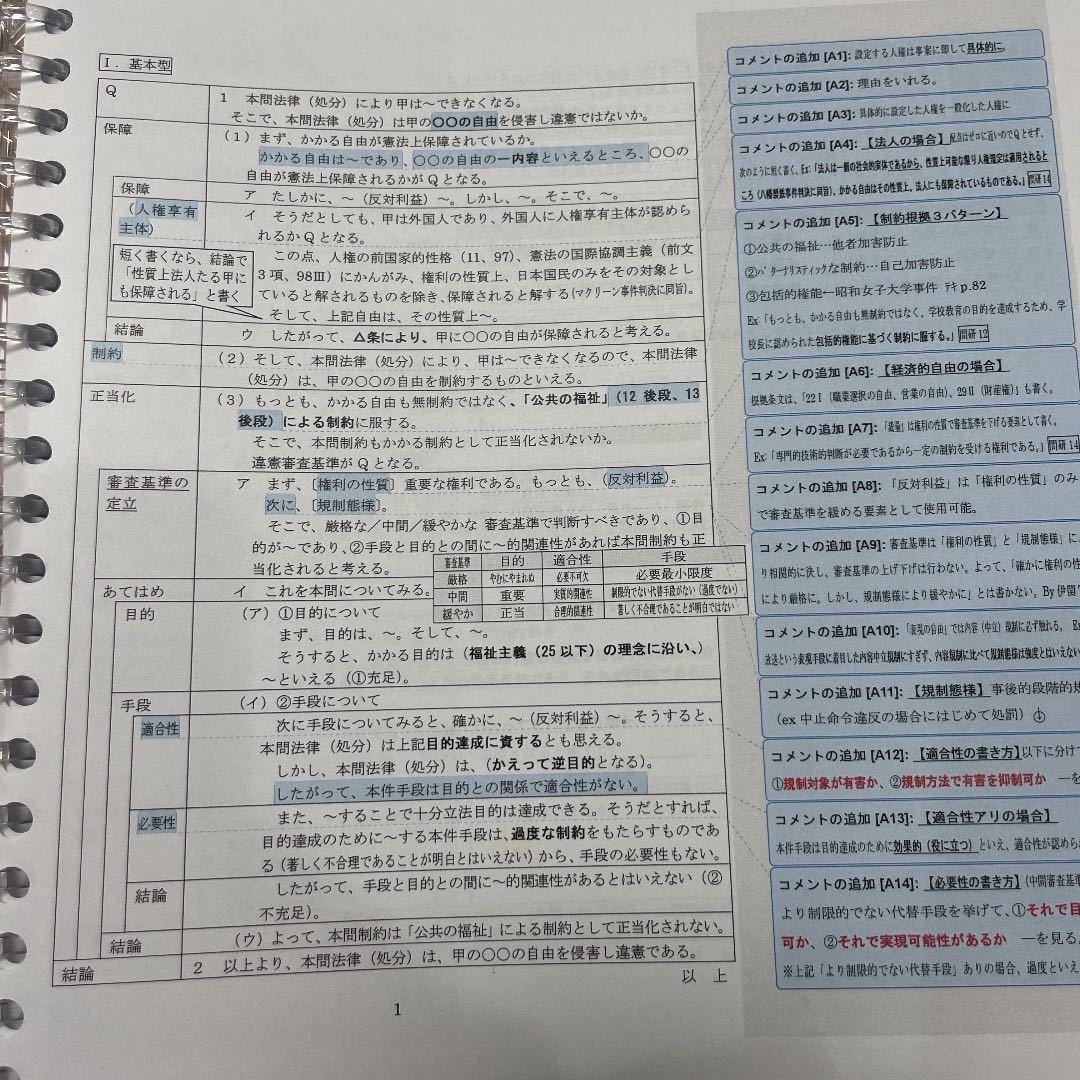 Ⅰ．基本型
Q
1　本問法律（処分）により甲は～できなくなる。
そこで、本問法律（処分）は甲の〇〇の自由を侵害し違憲ではないか。
保障
（1）まず、かかる自由が憲法上保障されているか。
かかる自由は～であり、〇〇の自由の一内容といえるところ、〇〇の
自由が憲法上保障されるかがＱとなる。
保障
（人権享有
主体）
ア　たしかに、～（反対利益）～。しかし、～。そこで、～。
イ　そうだとしても、甲は外国人であり、外国人に人権享有主体が認めら
れるかＱとなる。
この点、人権の前国家的性格（11、97）、憲法の国際協調主義（前文
3項、98Ⅲ）にかんがみ、権利の性質上、日本国民のみをその対象とし
ていると解されるものを除き、保障されると解する（マクリーン事件判決に同旨）。
そして、上記自由は、その性質上～。
短く書くなら、結論で
「性質上法人たる甲に
も保障される」と書く
結論
ウ　したがって、△条により、甲に〇〇の自由が保障されると考える。
制約
（2）そして、本問法律（処分）により、甲は～できなくなるので、本問法律
（処分）は、甲の〇〇の自由を制約するものといえる。
正当化
（3）もっとも、かかる自由も無制約ではなく、「公共の福祉」（12 後段、13
後段）による制約に服する。
そこで、本問制約もかかる制約として正当化されないか。
違憲審査基準がＱとなる。
審査基準の
定立
ア　まず、〔権利の性質〕重要な権利である。もっとも、（反対利益）。
次に、〔規制態様〕
そこで、厳格な／中間／緩やかな 審査基準で判断すべきであり、①目
的が～であり、②手段と目的との間に～的関連性があれば本問制約も正
当化されると考える。
審査基準　目的　適合性　手段
厳格　やむにやまれぬ　必要不可欠　必要最小限度
中間　重要　実質的関連性　制限的でない代替手段がない（過度でない）
緩やか　正当　合理的関連性　著しく不合理であることが明白ではない
あてはめ
イ　これを本問についてみる。
目的
（ア）①目的について
まず、目的は、～。そして、～。
そうすると、かかる目的は（福祉主義（25 以下）の理念に沿い、）
～といえる（①充足）。
手段
（イ）②手段について
適合性
次に手段についてみると、確かに、～（反対利益）～。そうすると、
本問法律（処分）は上記目的達成に資するとも思える。
しかし、本問法律（処分）は、（かえって逆目的となる）。
したがって、本件手段は目的との関係で適合性がない。
必要性
また、～することで十分立法目的は達成できる。そうだとすれば、
目的達成のために～する本件手段は、過度な制約をもたらすものであ
る（著しく不合理であることが明白とはいえない）から、手段の必要性もない。
結論
したがって、手段と目的との間に～的関連性があるとはいえない（②
不充足）。
結論
（ウ）よって、本問制約は「公共の福祉」による制約として正当化されない。
結論
2　以上より、本問法律（処分）は、甲の〇〇の自由を侵害し違憲である。
以　上
1
コメントの追加 [A1]: 設定する人権は事案に即して具体的に。
コメントの追加 [A2]: 理由をいれる。
コメントの追加 [A3]: 具体的に設定した人権を一般化した人権に
コメントの追加 [A4]: 【法人の場合】配点はゼロに近いのでＱとせず、
次のように短く書く。Ex:「法人は一個の社会的実体であるから、性質上可能な限り人権規定は適用されると
ころ（八幡製鉄事件判決に同旨）、かかる自由はその性質上、法人にも保障されているものである。」問研 14
コメントの追加 [A5]: 【制約根拠３パターン】
①公共の福祉…他者加害防止
②ﾊﾟﾀｰﾅﾘｽﾃｨｯｸな制約…自己加害防止
③包括的権能←昭和女子大学事件 ﾃｷ p.82
Ex:「もっとも、かかる自由も無制約ではなく、学校教育の目的を達成するため、学
校長に認められた包括的権能に基づく制約に服する。」問研 12
コメントの追加 [A6]: 【経済的自由の場合】
根拠条文は、「22Ⅰ（職業選択の自由、営業の自由）、29Ⅱ（財産権）」も書く。
コメントの追加 [A7]: 「裁量」は権利の性質で審査基準を下げる要素として書く。
Ex:「専門的技術的判断が必要であるから一定の制約を受ける権利である。」問研 14
コメントの追加 [A8]: 「反対利益」は「権利の性質」のみ
で審査基準を緩める要素として使用可能。
コメントの追加 [A9]: 審査基準は「権利の性質」と「規制態様」によ
り相関的に決し、審査基準の上げ下げは行わない。よって、「確かに権利の性
により厳格に。しかし、規制態様により緩やかに」とは書かない。By 伊関
コメントの追加 [A10]: 「表現の自由」では内容（中立）規制に必ず触れる。 Ex
放送という表現手段に着目した内容中立規制にすぎず、内容規制に比べて規制態様は強度とはいえない
コメントの追加 [A11]: 【規制態様】事後的段階的規
（ex 中止命令違反の場合にはじめて処罰）
コメントの追加 [A12]: 【適合性の書き方】以下に分けて
①規制対象が有害か、②規制方法で有害を抑制可か　―を
コメントの追加 [A13]: 【適合性アリの場合】
本件手段は目的達成のために効果的（役に立つ）といえ、適合性が認めら
コメントの追加 [A14]: 【必要性の書き方】（中間審査基準
より制限的でない代替手段を挙げて、①それで目
可か、②それで実現可能性があるか　―を見る。
※上記「より制限的でない代替手段」ありの場合、過度といえ